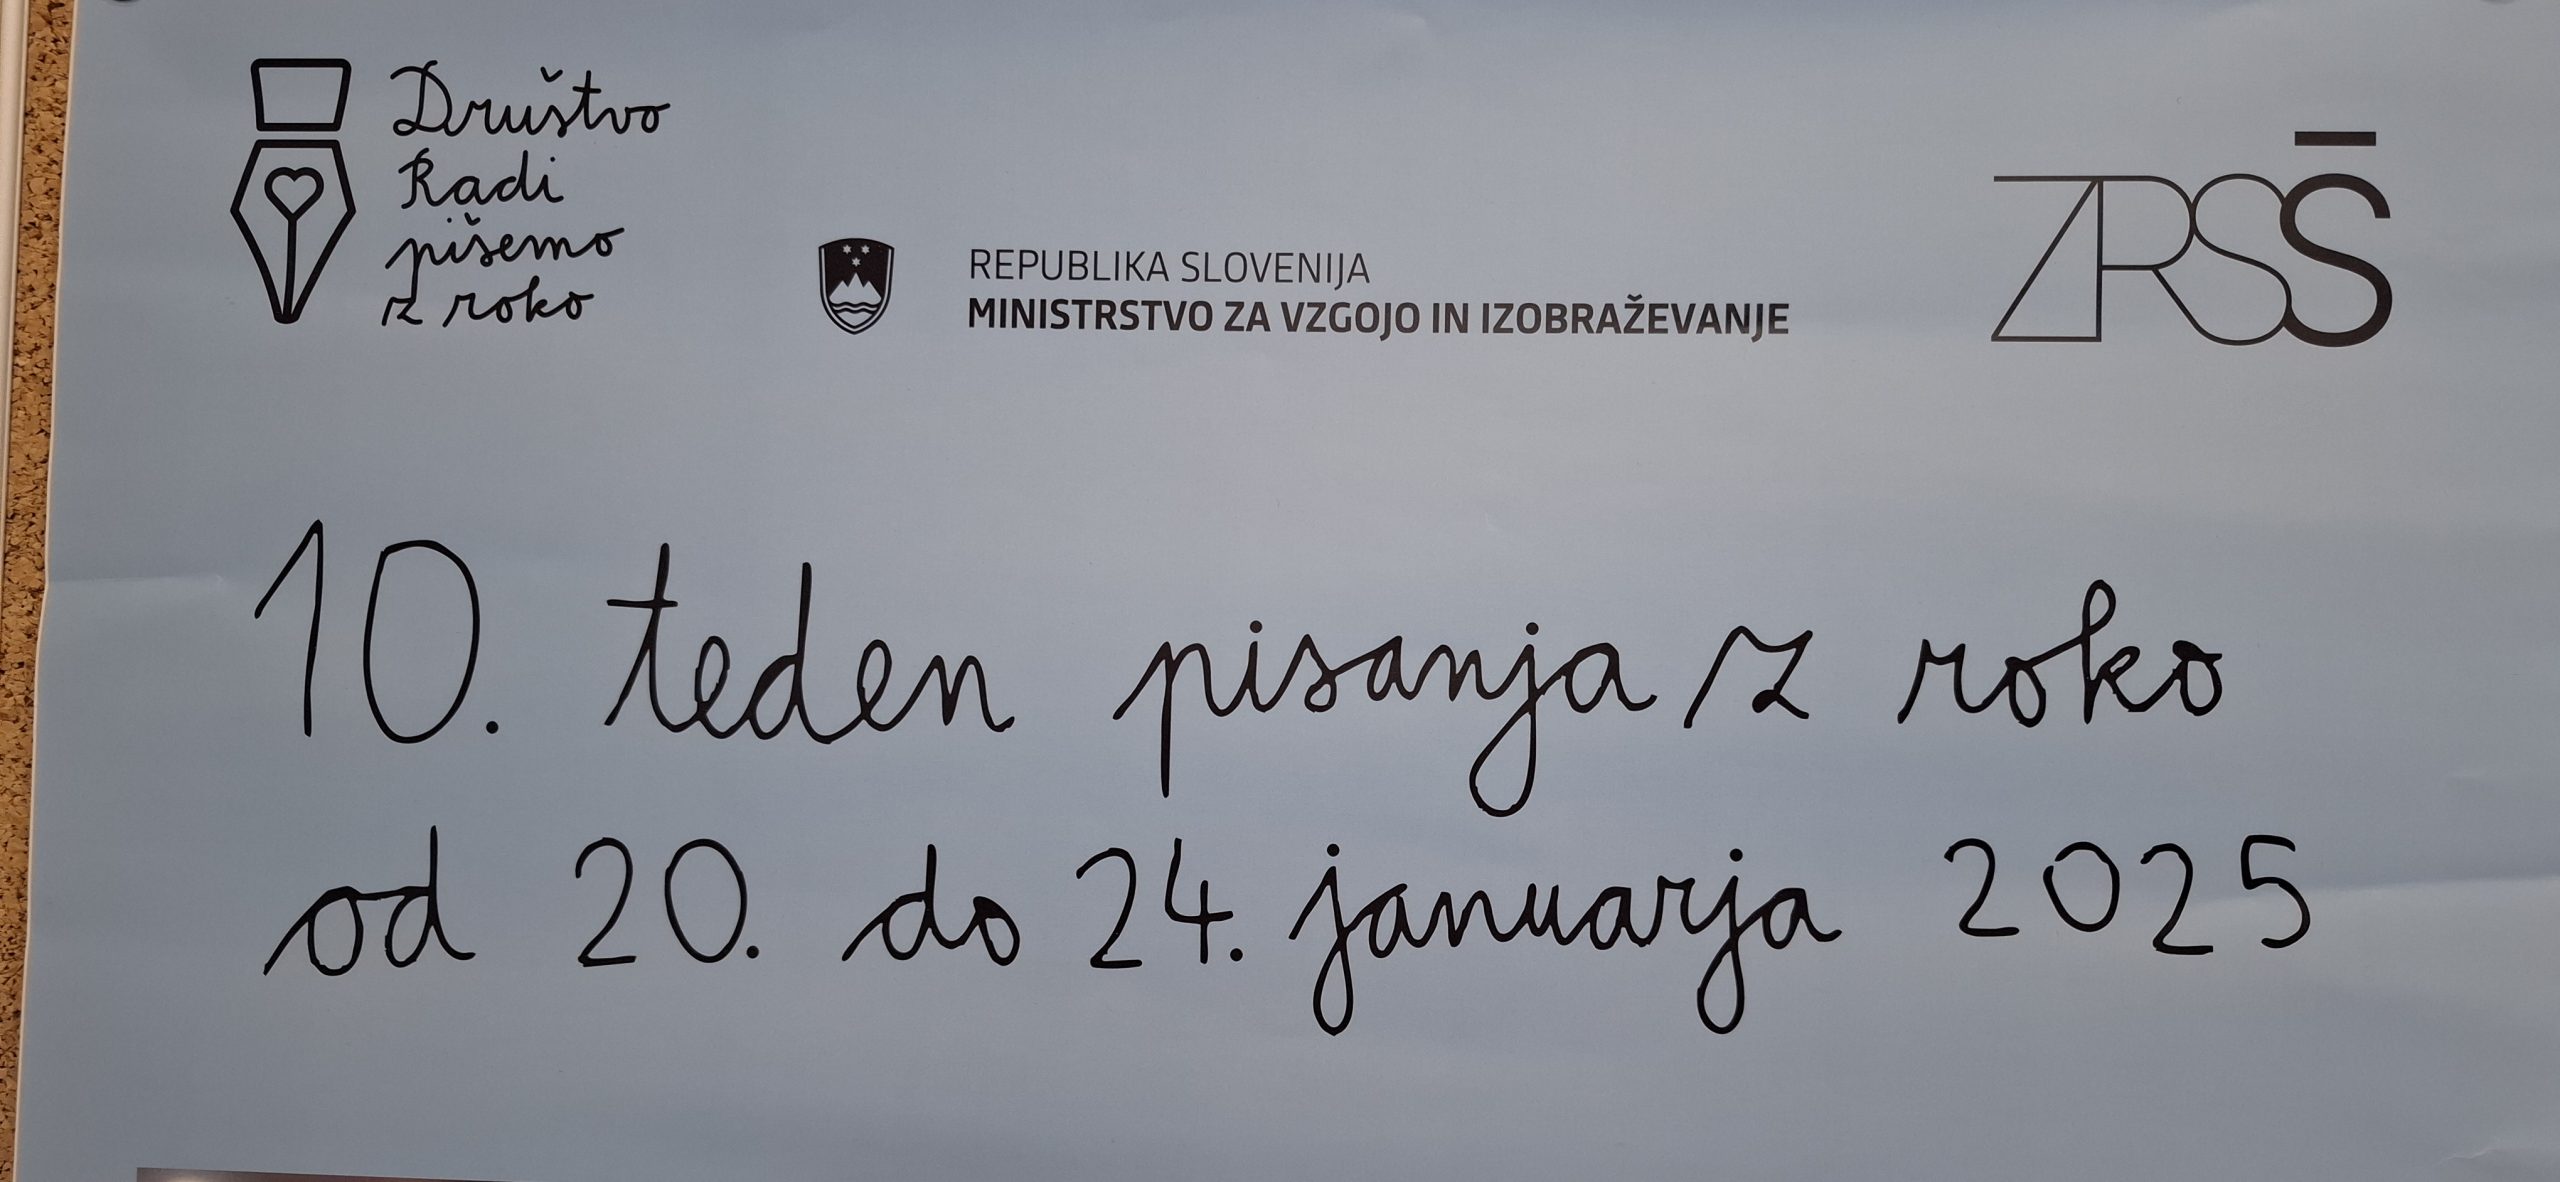 Društvo
Radi
pišemo
z roko
REPUBLIKA SLOVENIJA
MINISTRSTVO ZA VZGOJO IN IZOBRAŽEVANJE
ZRSŠ
10. teden pisanja z roko
od 20. do 24. januarja 2025